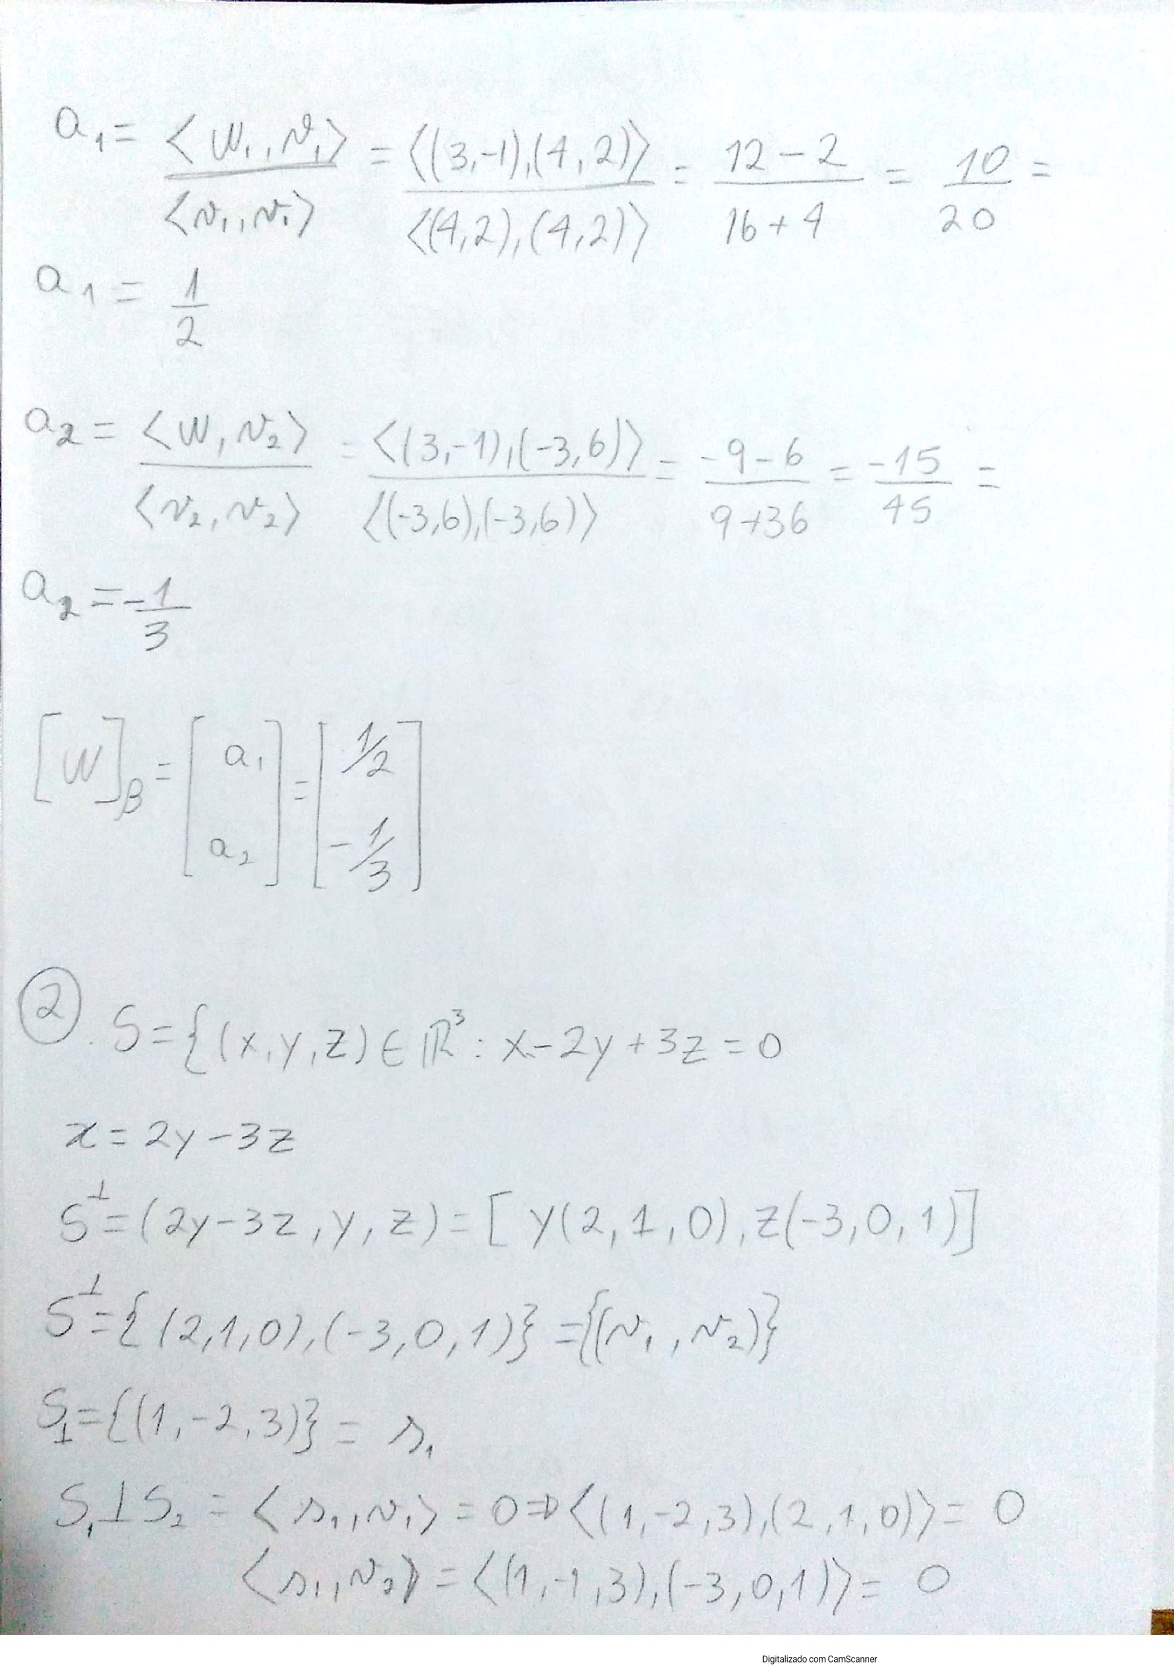 a₁ = <w₁,v₁> / <v₁,v₁> = <(3,-1),(4,2)> / <(4,2),(4,2)> = 12-2 / 16+4 = 10 / 20 =
a₁ = 1/2
a₂ = <w,v₂> / <v₂,v₂> = <(3,-1),(-3,6)> / <(-3,6),(-3,6)> = -9-6 / 9+36 = -15 / 45 =
a₂ = -1/3
[w]β = [a₁ a₂] = [1/2 -1/3]
② S={(x,y,z)∈ℝ³: x-2y+3z=0
x=2y-3z
S⊥=(2y-3z,y,z)=[y(2,1,0),z(-3,0,1)]
S⊥={(2,1,0),(-3,0,1)}={(v₁,v₂)}
S⊥={(1,-2,3)}=s₁
S₁⊥S₂ = <s₁,v₁>=0⇒<(1,-2,3),(2,1,0)>=0
<s₁,v₂>=<(1,-1,3),(-3,0,1)>=0
Digitalizado com CamScanner